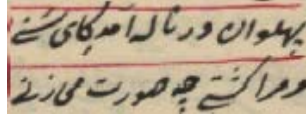 پهلوان در ناله آمد کای سنے
مرا کشتے چه صورت می زنے